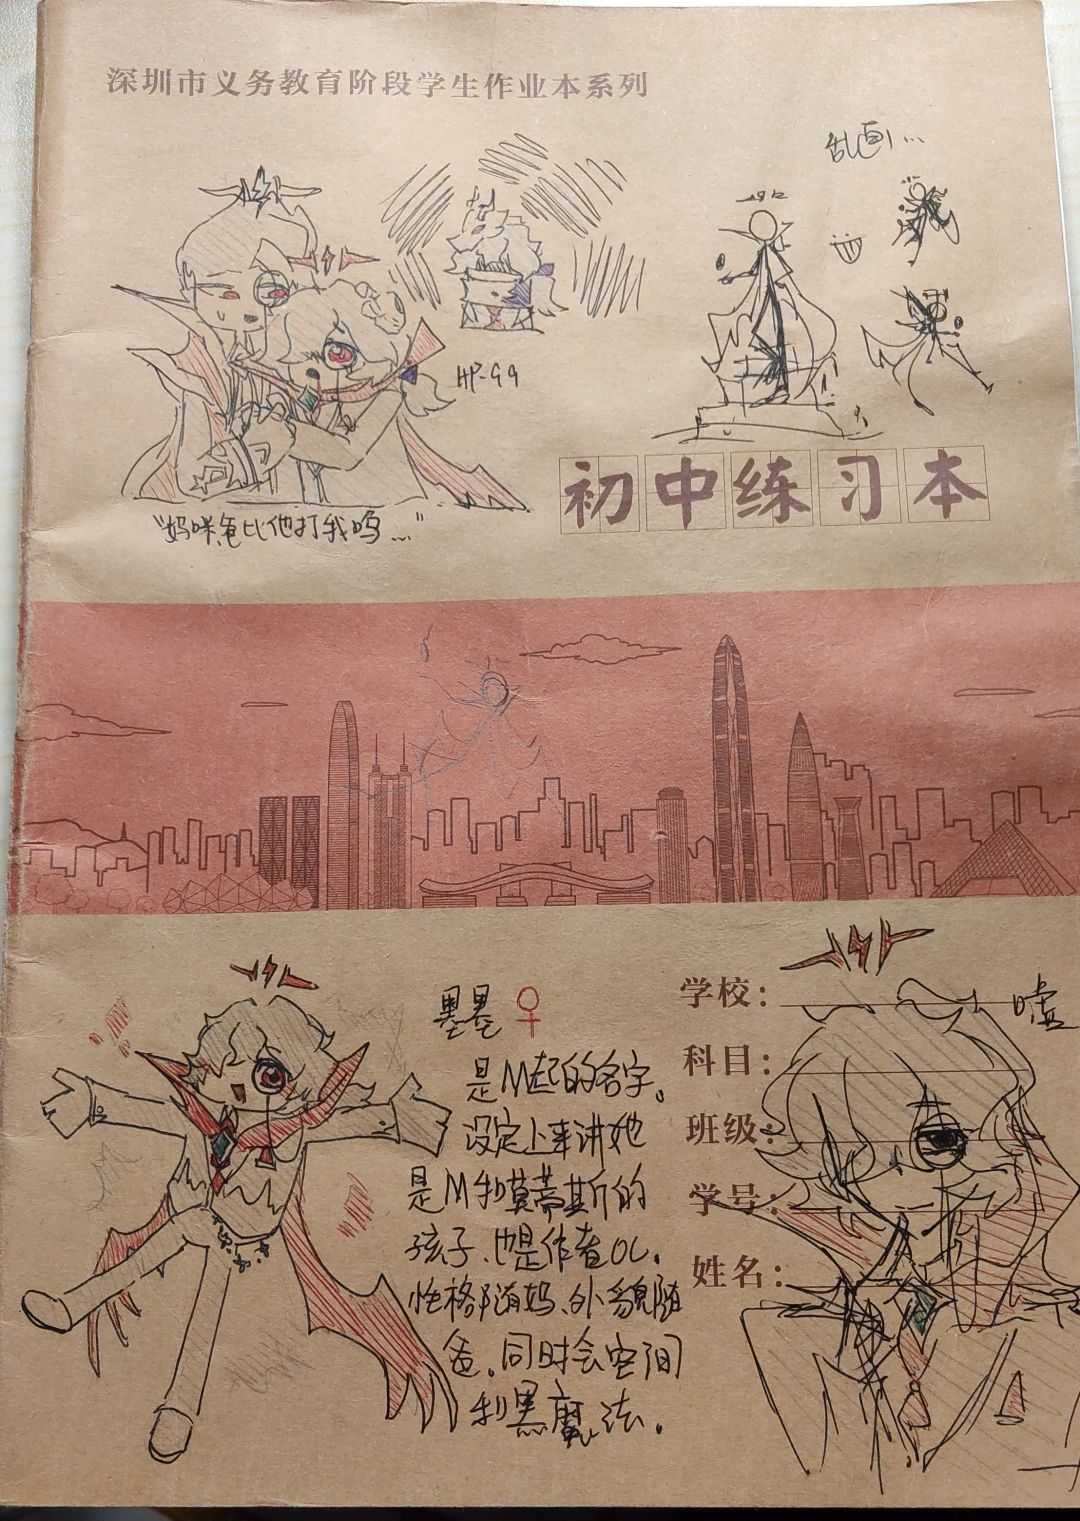 深圳市义务教育阶段学生作业本系列
乱画…
HP-99
初中练习本
"妈咪爸比他打我呜…"
墨墨♀
是M起的名字。
设定上来讲她
是M和莫蒂斯的
孩子、也是作者OC。
性格随妈、外貌随
爸。同时会空间
和黑魔法。
学校:
科目:
班级:
学号:
姓名:
嘘